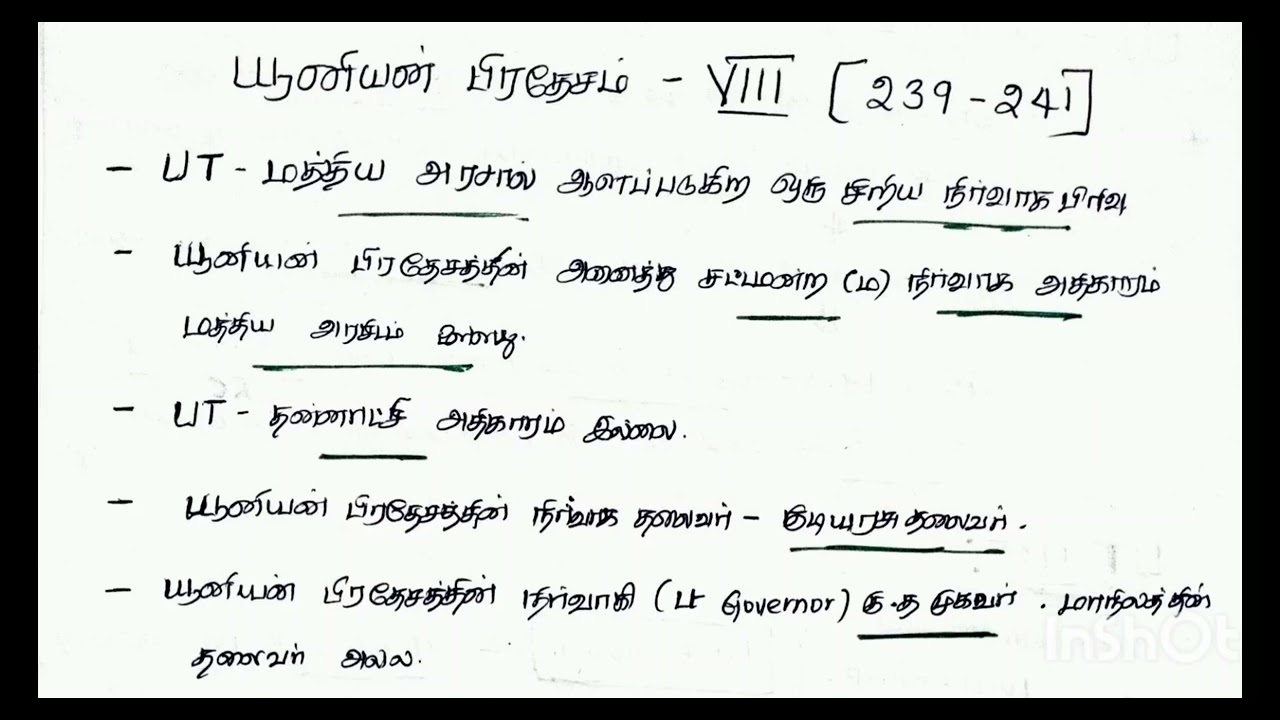 யூனியன் பிரதேசம் - VIII [239-241]
- UT - மத்திய அரசால் ஆளப்படுகிற ஒரு சிறிய நிர்வாக பிரிவு
- யூனியன் பிரதேசத்தின் அனைத்து சட்டமன்ற (ம) நிர்வாக அதிகாரம்
மத்திய அரசிடம் உள்ளது.
- UT - தன்னாட்சி அதிகாரம் இல்லை.
- யூனியன் பிரதேசத்தின் நிர்வாக தலைவர் - குடியரசு தலைவர்.
- யூனியன் பிரதேசத்தின் நிர்வாகி (Lt Governor) கு.த முகவர். மாநிலத்தின்
தலைவர் அல்ல.
InShOt